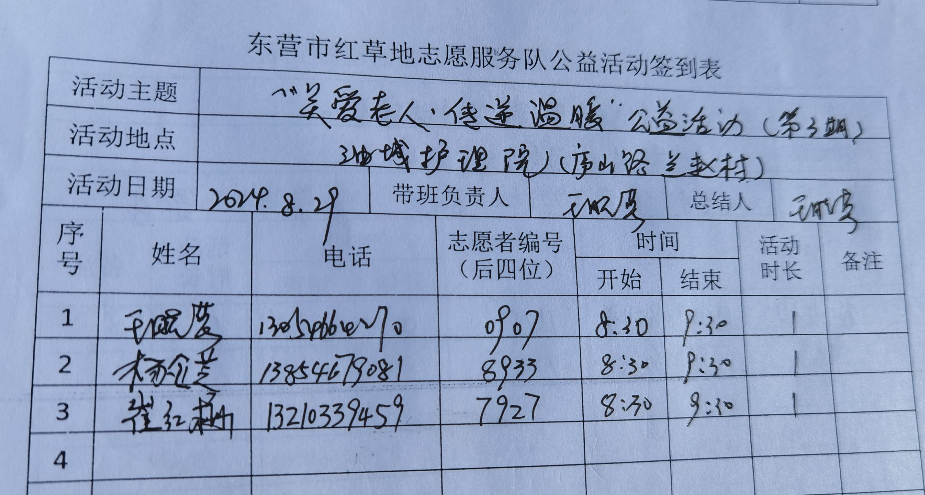 东营市红草地志愿服务队公益活动签到表
活动主题 “关爱老人·传递温暖”公益活动（第3期）
活动地点 油城护理院（庐山路兰赵村）
活动日期 2024.8.29 带班负责人 总结人
序号 姓名 电话 志愿者编号（后四位） 时间 开始 结束 活动时长 备注
1 0907 8:30 9:30 1
2 13854679081 8933 8:30 9:30 1
3 崔红梅 13210339459 7927 8:30 9:30 1
4